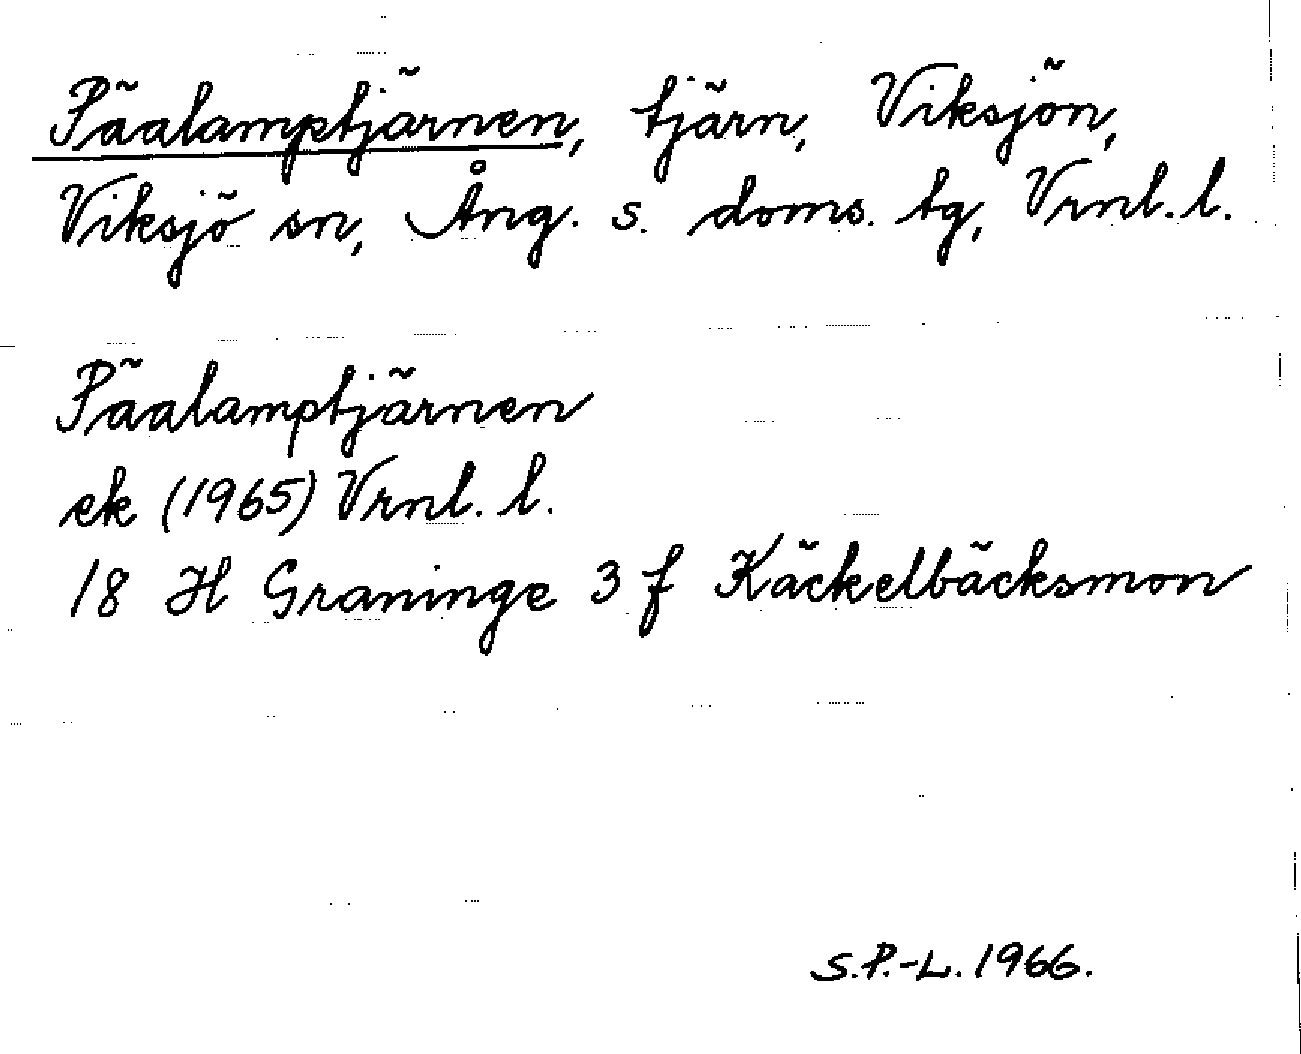 Päalamptjärnen, tjärn, Viksjön,
Viksjö sn, Ång. s. doms. tg, Vrnl. l.
Päalamptjärnen
ek (1965) Vrnl. l.
18 H Graninge 3 f Käckelbäcksmon
S.P.-L. 1966.